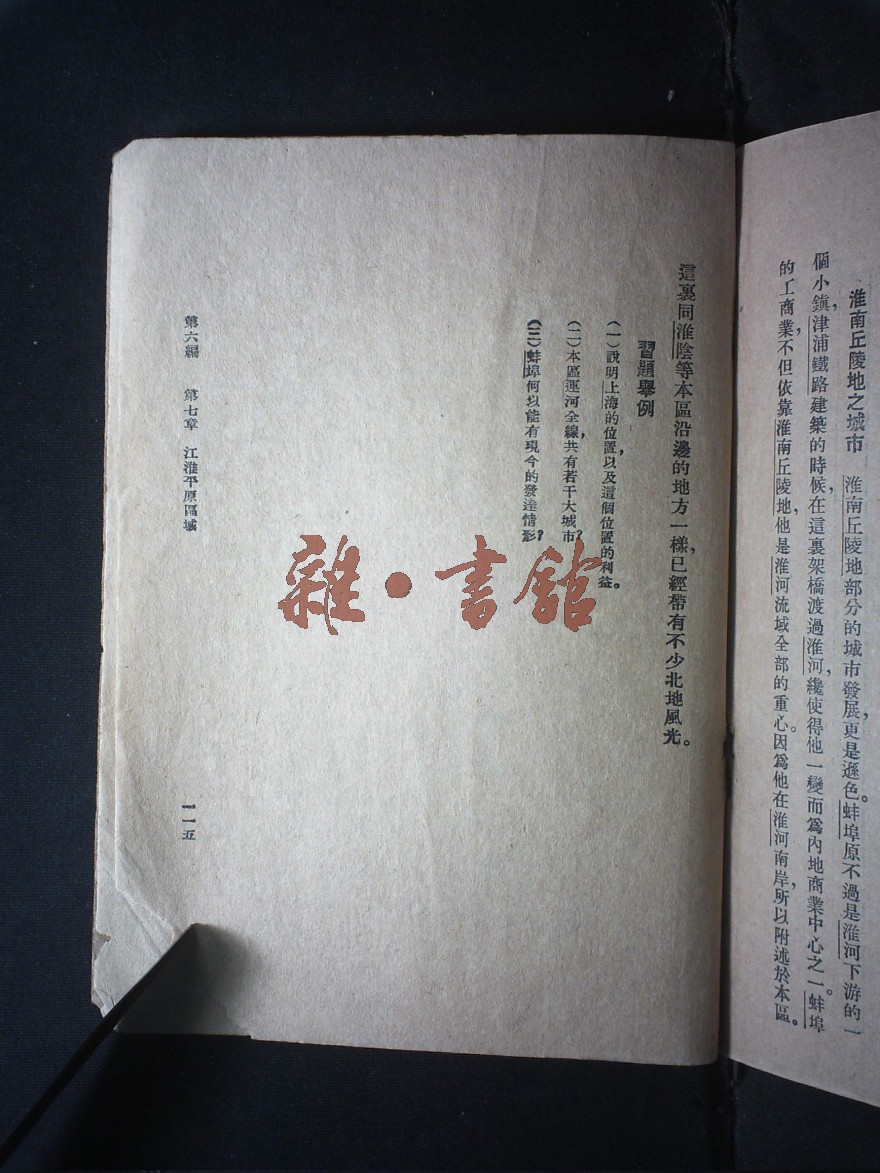 淮南丘陵地之城市　淮南丘陵地部分的城市發展，更是遜色。蚌埠原不過是淮河下游的一
個小鎮，津浦鐵路建築的時候，在這裏架橋渡過淮河，纔使得他一變而爲內地商業中心之一。蚌埠
的工商業，不但依靠淮南丘陵地，他是淮河流域全部的重心。因爲他在淮河南岸，所以附述於本區。
這裏同淮陰等本區沿邊的地方一樣，已經帶有不少北地風光。
習題舉例
（一）說明上海的位置，以及這個位置的利益。
（二）本區運河全線，共有若干大城市？
（三）蚌埠何以能有現今的發達情形？
第六編　第七章　江淮平原區域
一一五
雜·書館